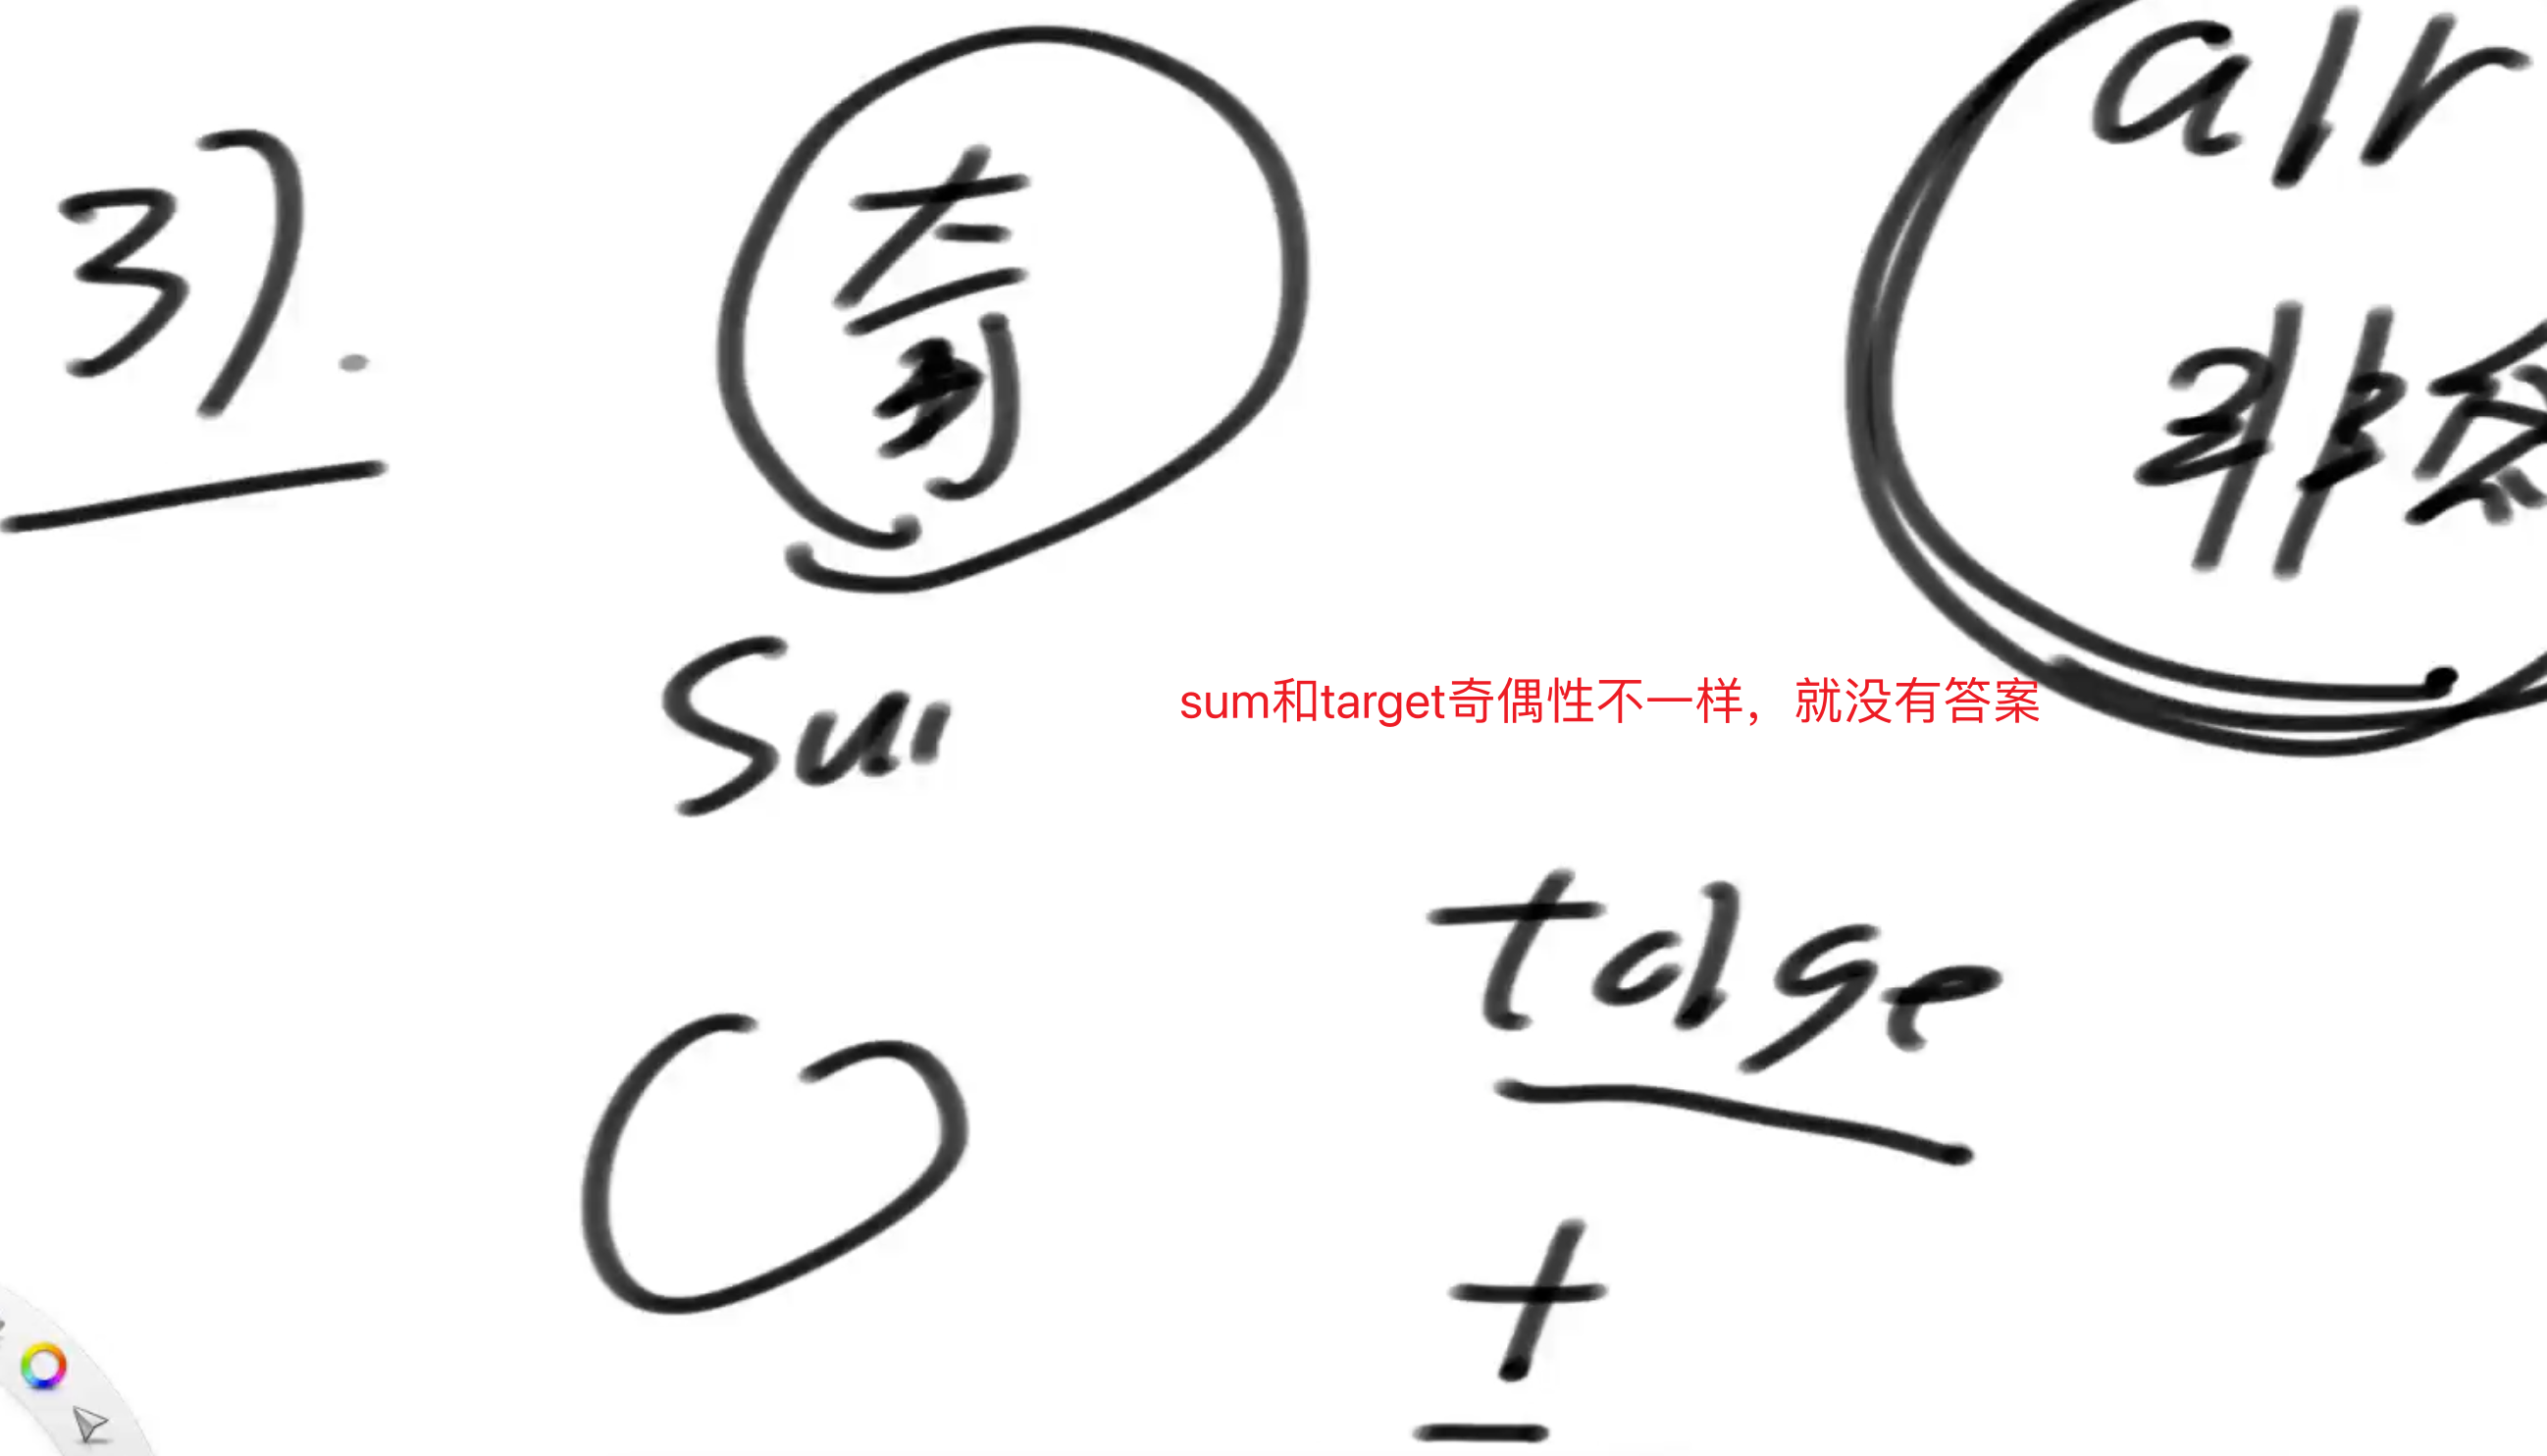 arr
3).
奇
非负
sum
sum和target奇偶性不一样，就没有答案
targe
+
-